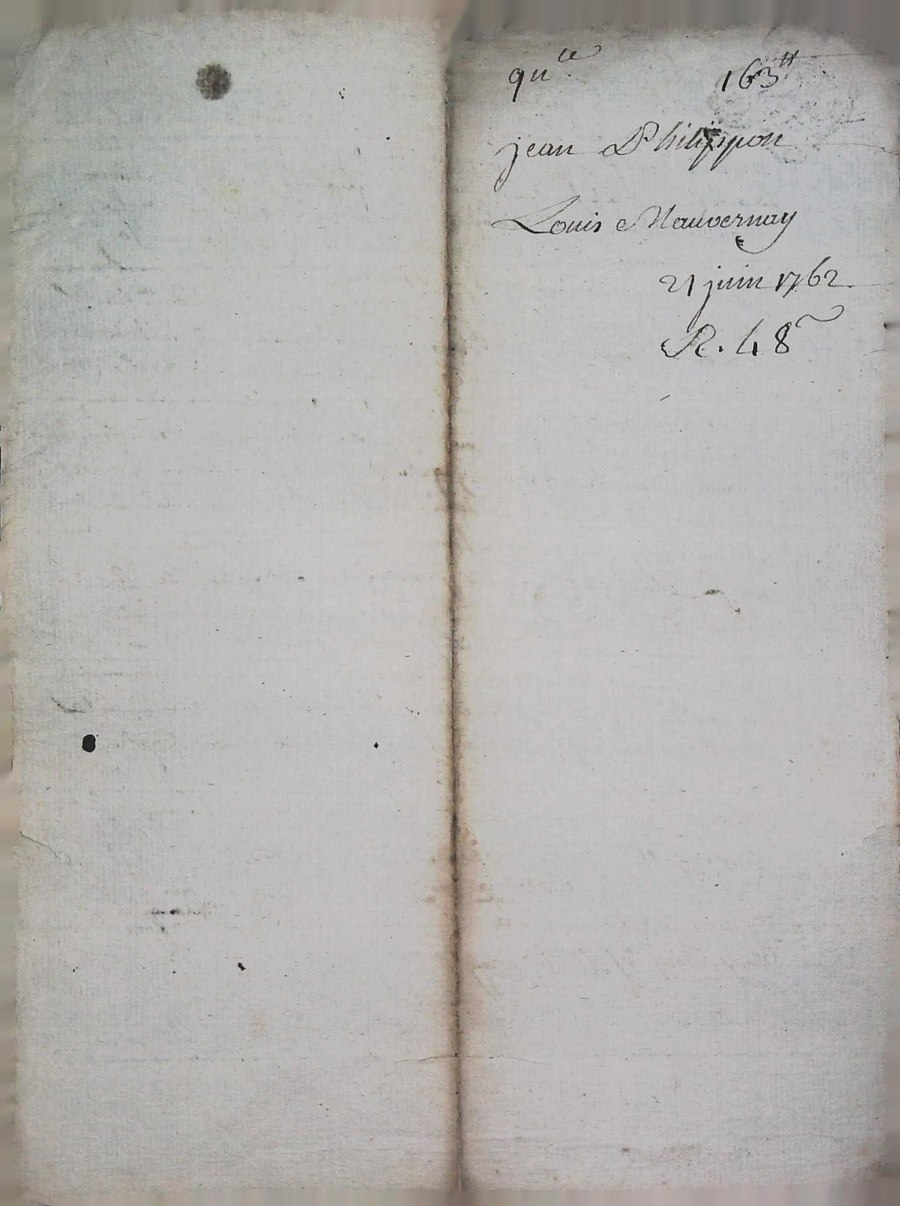 qu.ce 163 ₶
jean Philippon
Louis Nauvernay
21 juin 1762
R. 48